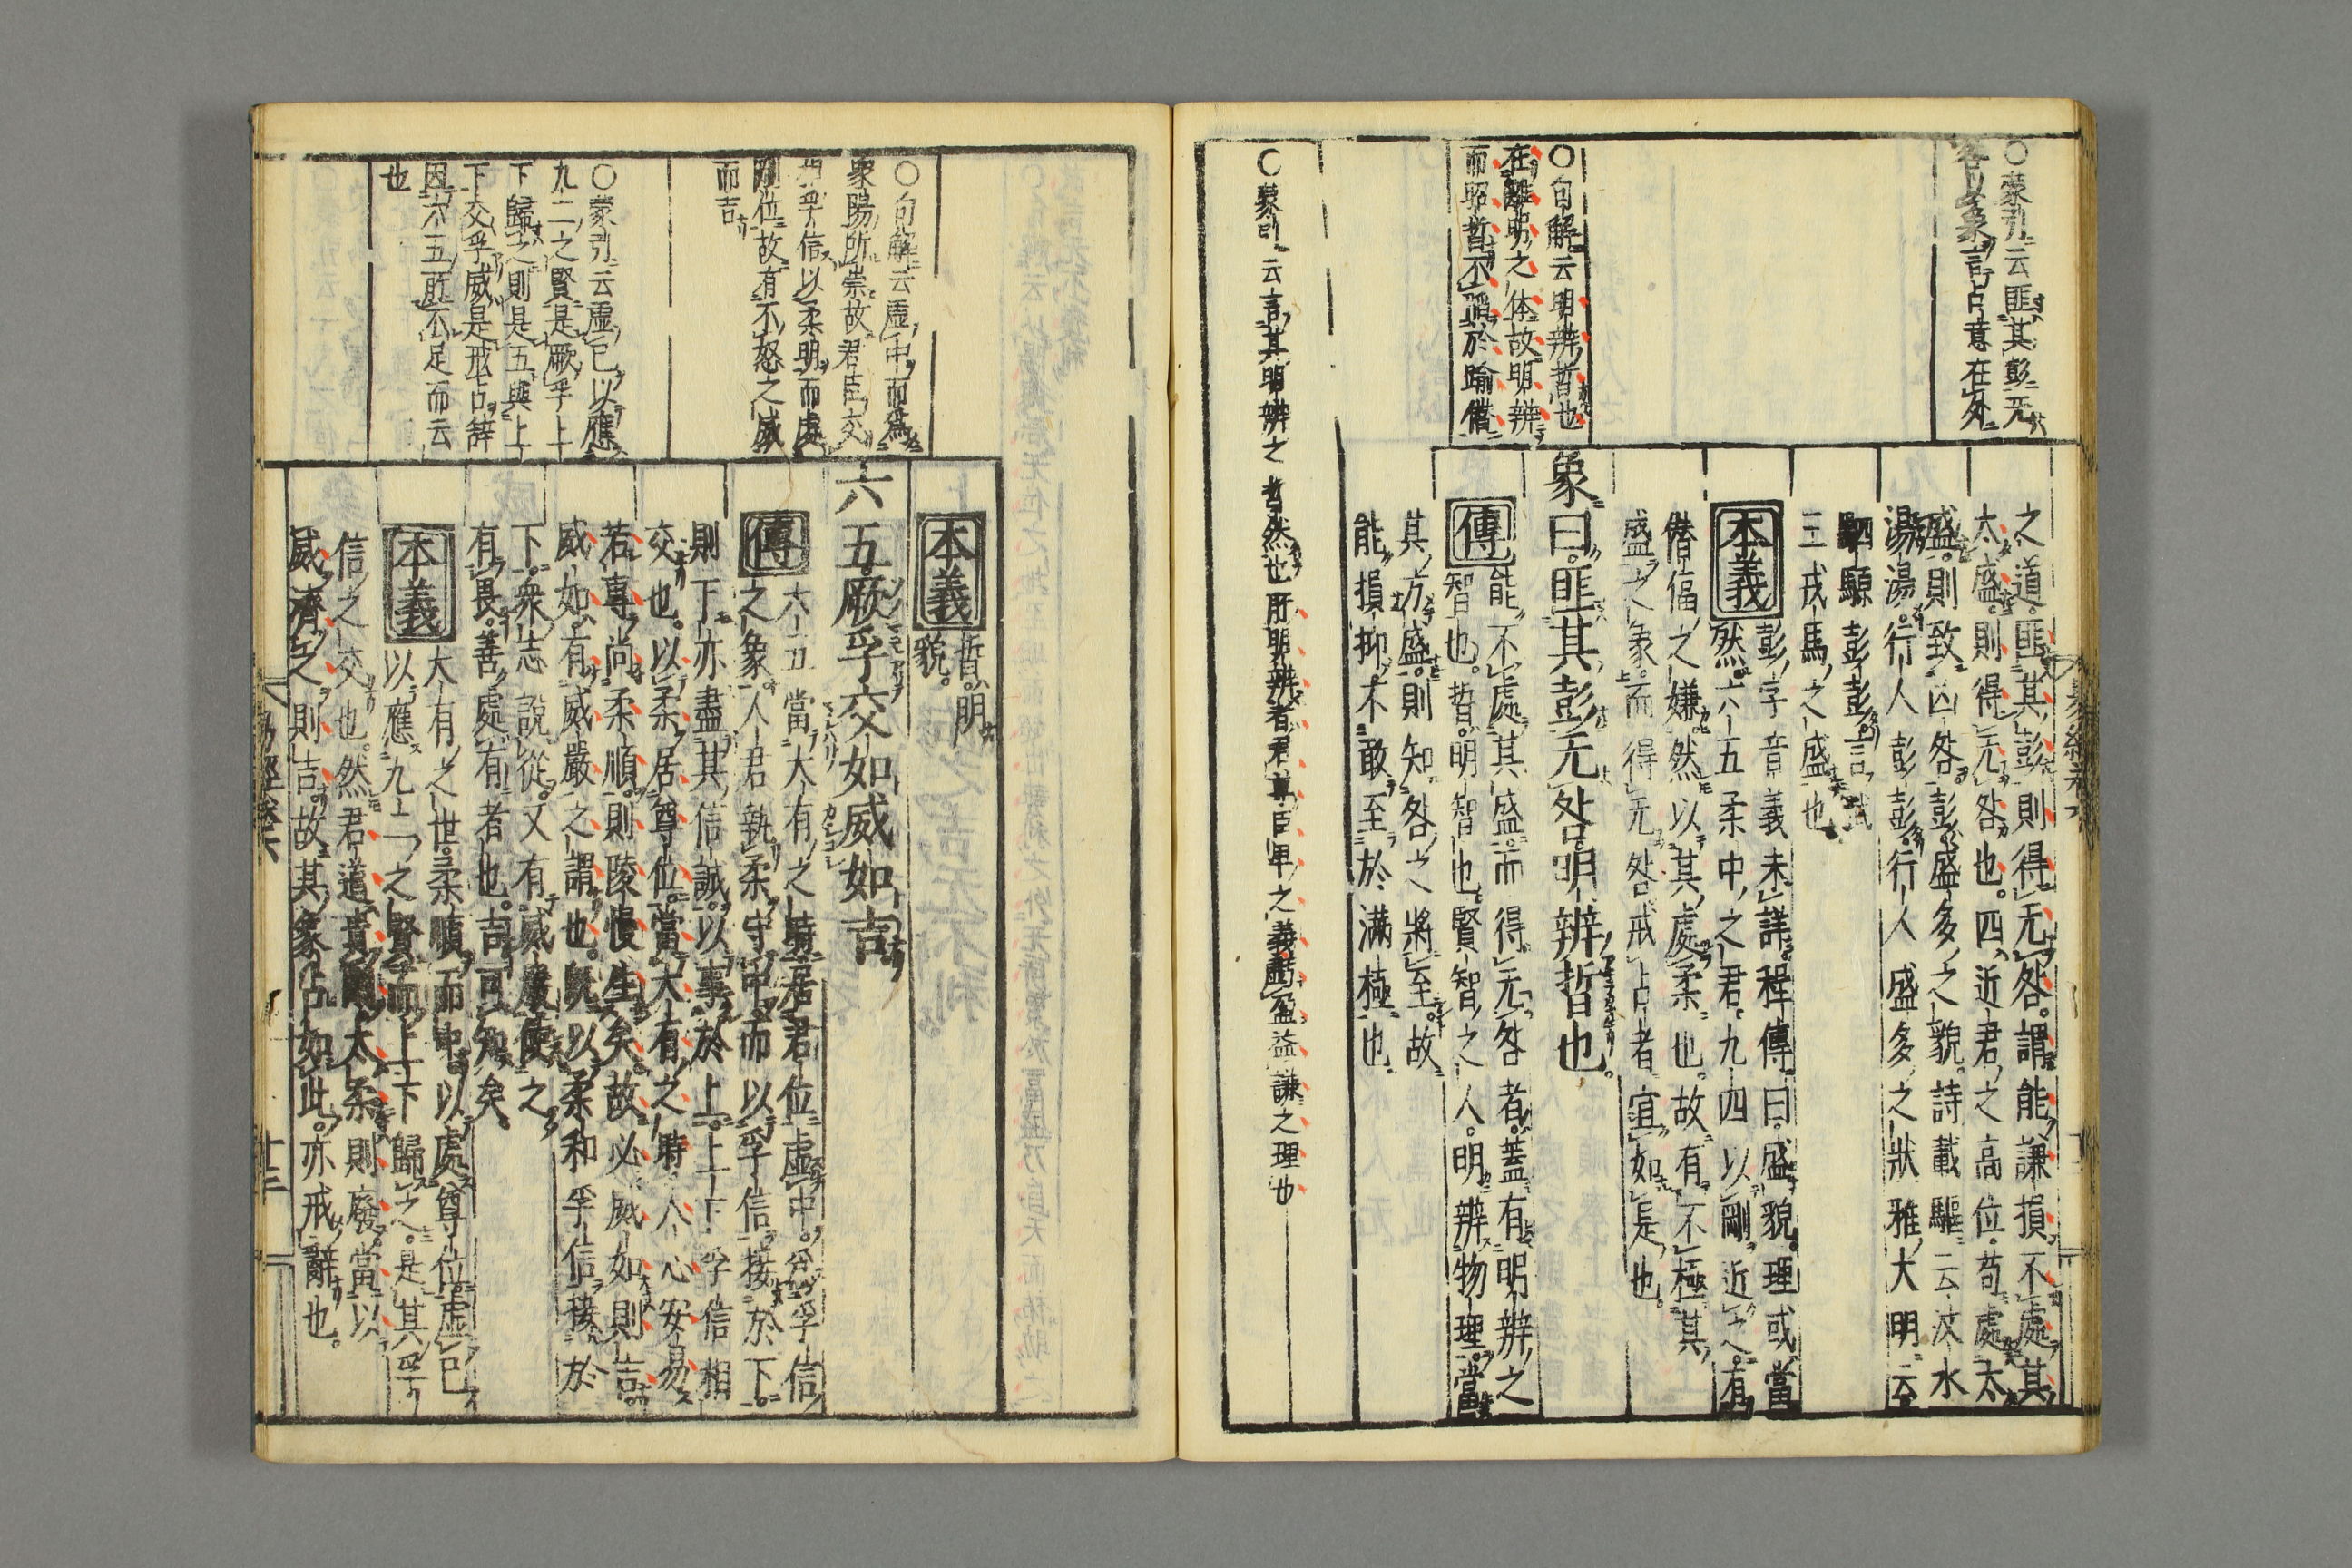 ○蒙引云匪其彭无
咎以象言占意在外
○句解云明辨晢也
在離明之体故明辨
而昭晢不蹈於踰僭
○蒙引云言其明辨之晢然也所明辨者君尊臣卑之義虧盈益謙之理也
之道匪其彭則得无咎謂能謙損不處其
太盛則得无咎也四近君之高位苟處太
盛則致凶咎彭盛多之貌詩載驅云汶水
湯湯行人彭彭行人盛多之狀雅大明云
駟騵彭彭言武
王戎馬之盛也
本義
彭字音義未詳程傳曰盛貌理或當
然六五柔中之君九四以剛近之有
僭偪之嫌然以其處柔也故有不極其
盛之象而得无咎戒占者宜如是也
象曰匪其彭无咎明辨晢也
傳
能不處其盛而得无咎者蓋有明辨之
智也晢明智也賢智之人明辨物理當
其方盛則知咎之將至故
能損抑不敢至於滿極也
○句解云虛中而爲
衆陽所崇故君臣交
相孚信以柔明而處
剛位故有不怒之威
而吉
○蒙引云虛己以應
九二之賢是厥孚上
下歸之則是五與上
下交孚威是戒占辭
因六五所不足而云
也
本義
晢明
貌
六五厥孚交如威如吉
傳
六五當大有之時居君位虛中爲孚信
之象人君執柔守中而以孚信接於下
則下亦盡其信誠以事於上上下孚信相
交也以柔居尊位當大有之時人心安易
若專尚柔順則陵慢生矣故必威如則吉
威如有威嚴之謂也既以柔和孚信接於
下衆志說從又有威嚴使之
有畏善處有者也吉可知矣
本義
大有之世柔順而中以處尊位虛己
以應九二之賢而上下歸之是其孚
信之交也然君道貴剛太柔則廢當以
威濟之則吉故其象占如此亦戒辭也
易經卷六
十三